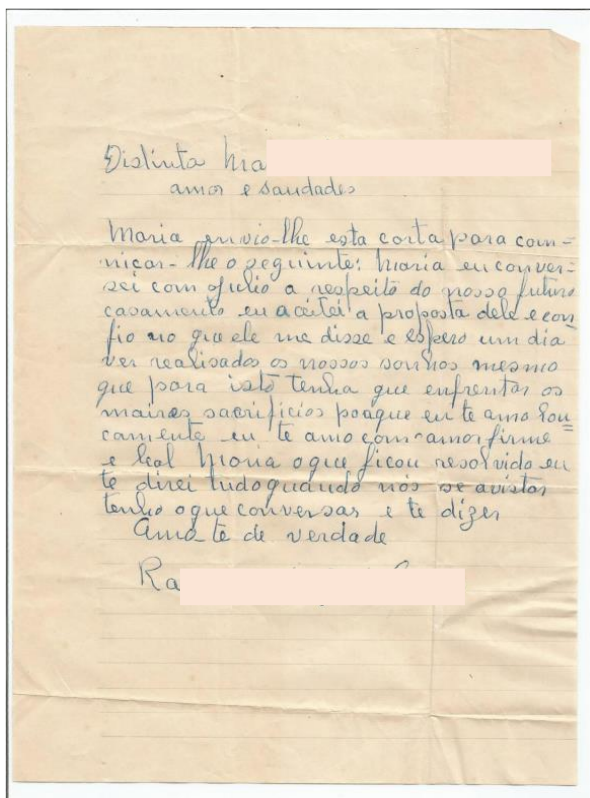 Distinta Ma
amor e saudades
Maria envio-lhe esta carta para com=
nicar-lhe o seguinte: Maria eu conver=
sei com Julio a respeito do nosso futuro
casamento eu aceitei a proposta dele e con=
fio no que ele me disse e espero um dia
ver realisados os nossos sonhos mesmo
que para isto tenha que enfrentar os
maires sacrificios porque eu te amo lou=
camente eu te amo com amor firme
e leal Maria o que ficou resolvido eu
te direi tudo quando nós se avistar
tenho o que conversar e te dizer
Ama-te de verdade
Ra